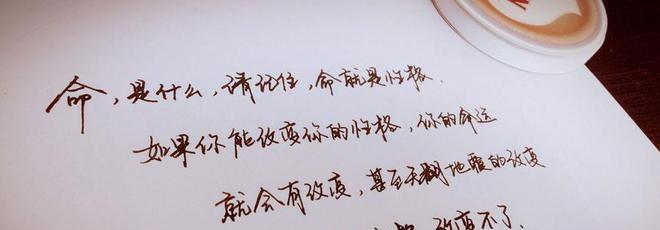 命，是什么，请记住，命就是性格.
如果你能改变你的性格，你的命运
就会有改变，甚至天翻地覆的改变
改变不了.